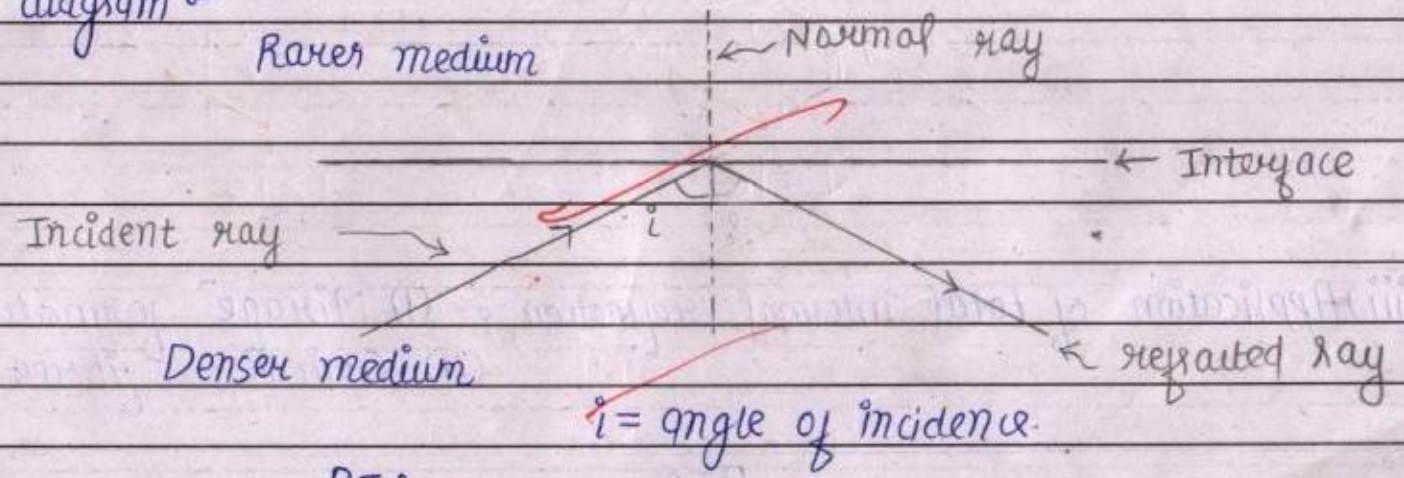 diagram
Rarer medium
Normal ray
Interface
Incident ray
i
Denser medium
refraited ray
i = angle of incidence.